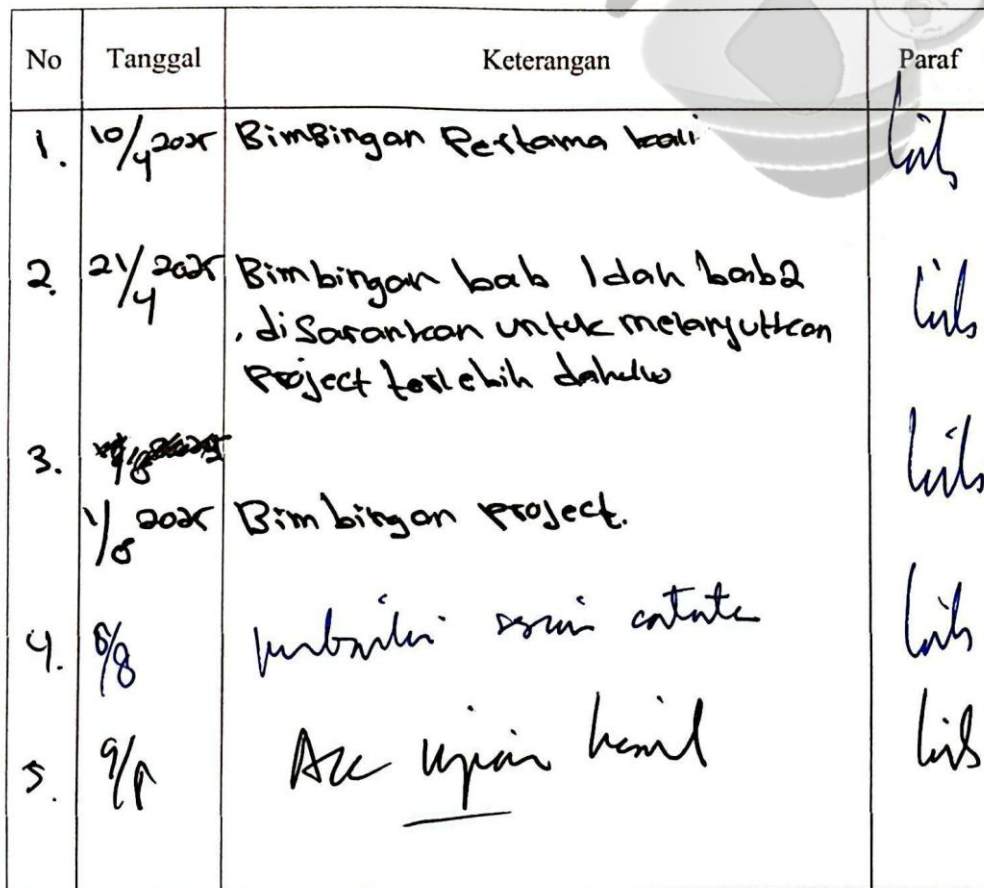 No Tanggal Keterangan Paraf
1. 10/4 2025 BimBingan Pertama kali
2. 21/4 2025 Bimbingan bab 1 dan bab2
, disarankan untuk melanjutkan
Project terlebih dahulu
3.
1/8 2025 Bimbingan project.
4. 6/8 perbaiki sesuai catatan
5. 9/8 Acc Ujian hasil